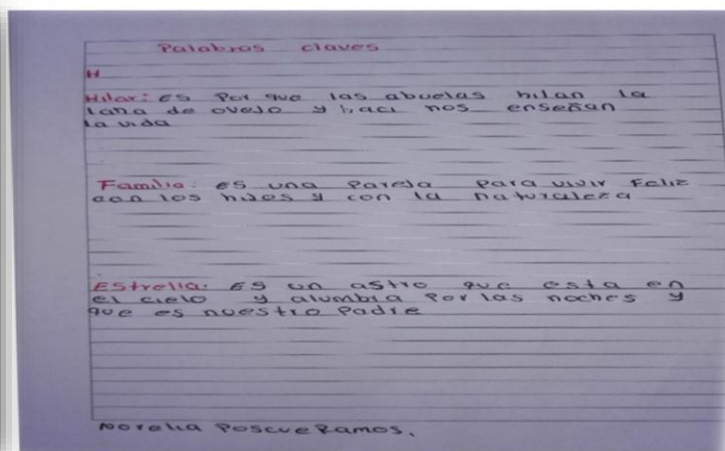 Palabras claves
H
Hilar: es por que las abuelas hilan la
lana de ovejo y haci nos enseñan
la vida
Familia: es una pareja para vivir Feliz
con los hijos y con la naturaleza
Estrella: Es un astro que esta en
el cielo y alumbra por las noches y
que es nuestro Padre
Norelia Poscue Ramos.